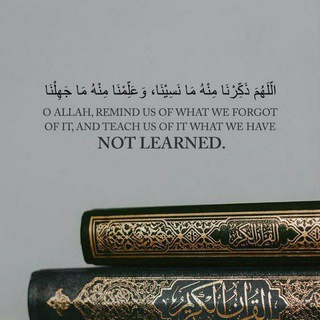 اللَّهُمَ ذَكِّرْنَا مِنْهُ مَا نَسِيْنَا، وَعَلِّمْنَا مِنْهُ مَا جَهِلْنَا
O ALLAH, REMIND US OF WHAT WE FORGOT
OF IT, AND TEACH US OF IT WHAT WE HAVE
NOT LEARNED.
القرآن الكريم
القرآن الكريم